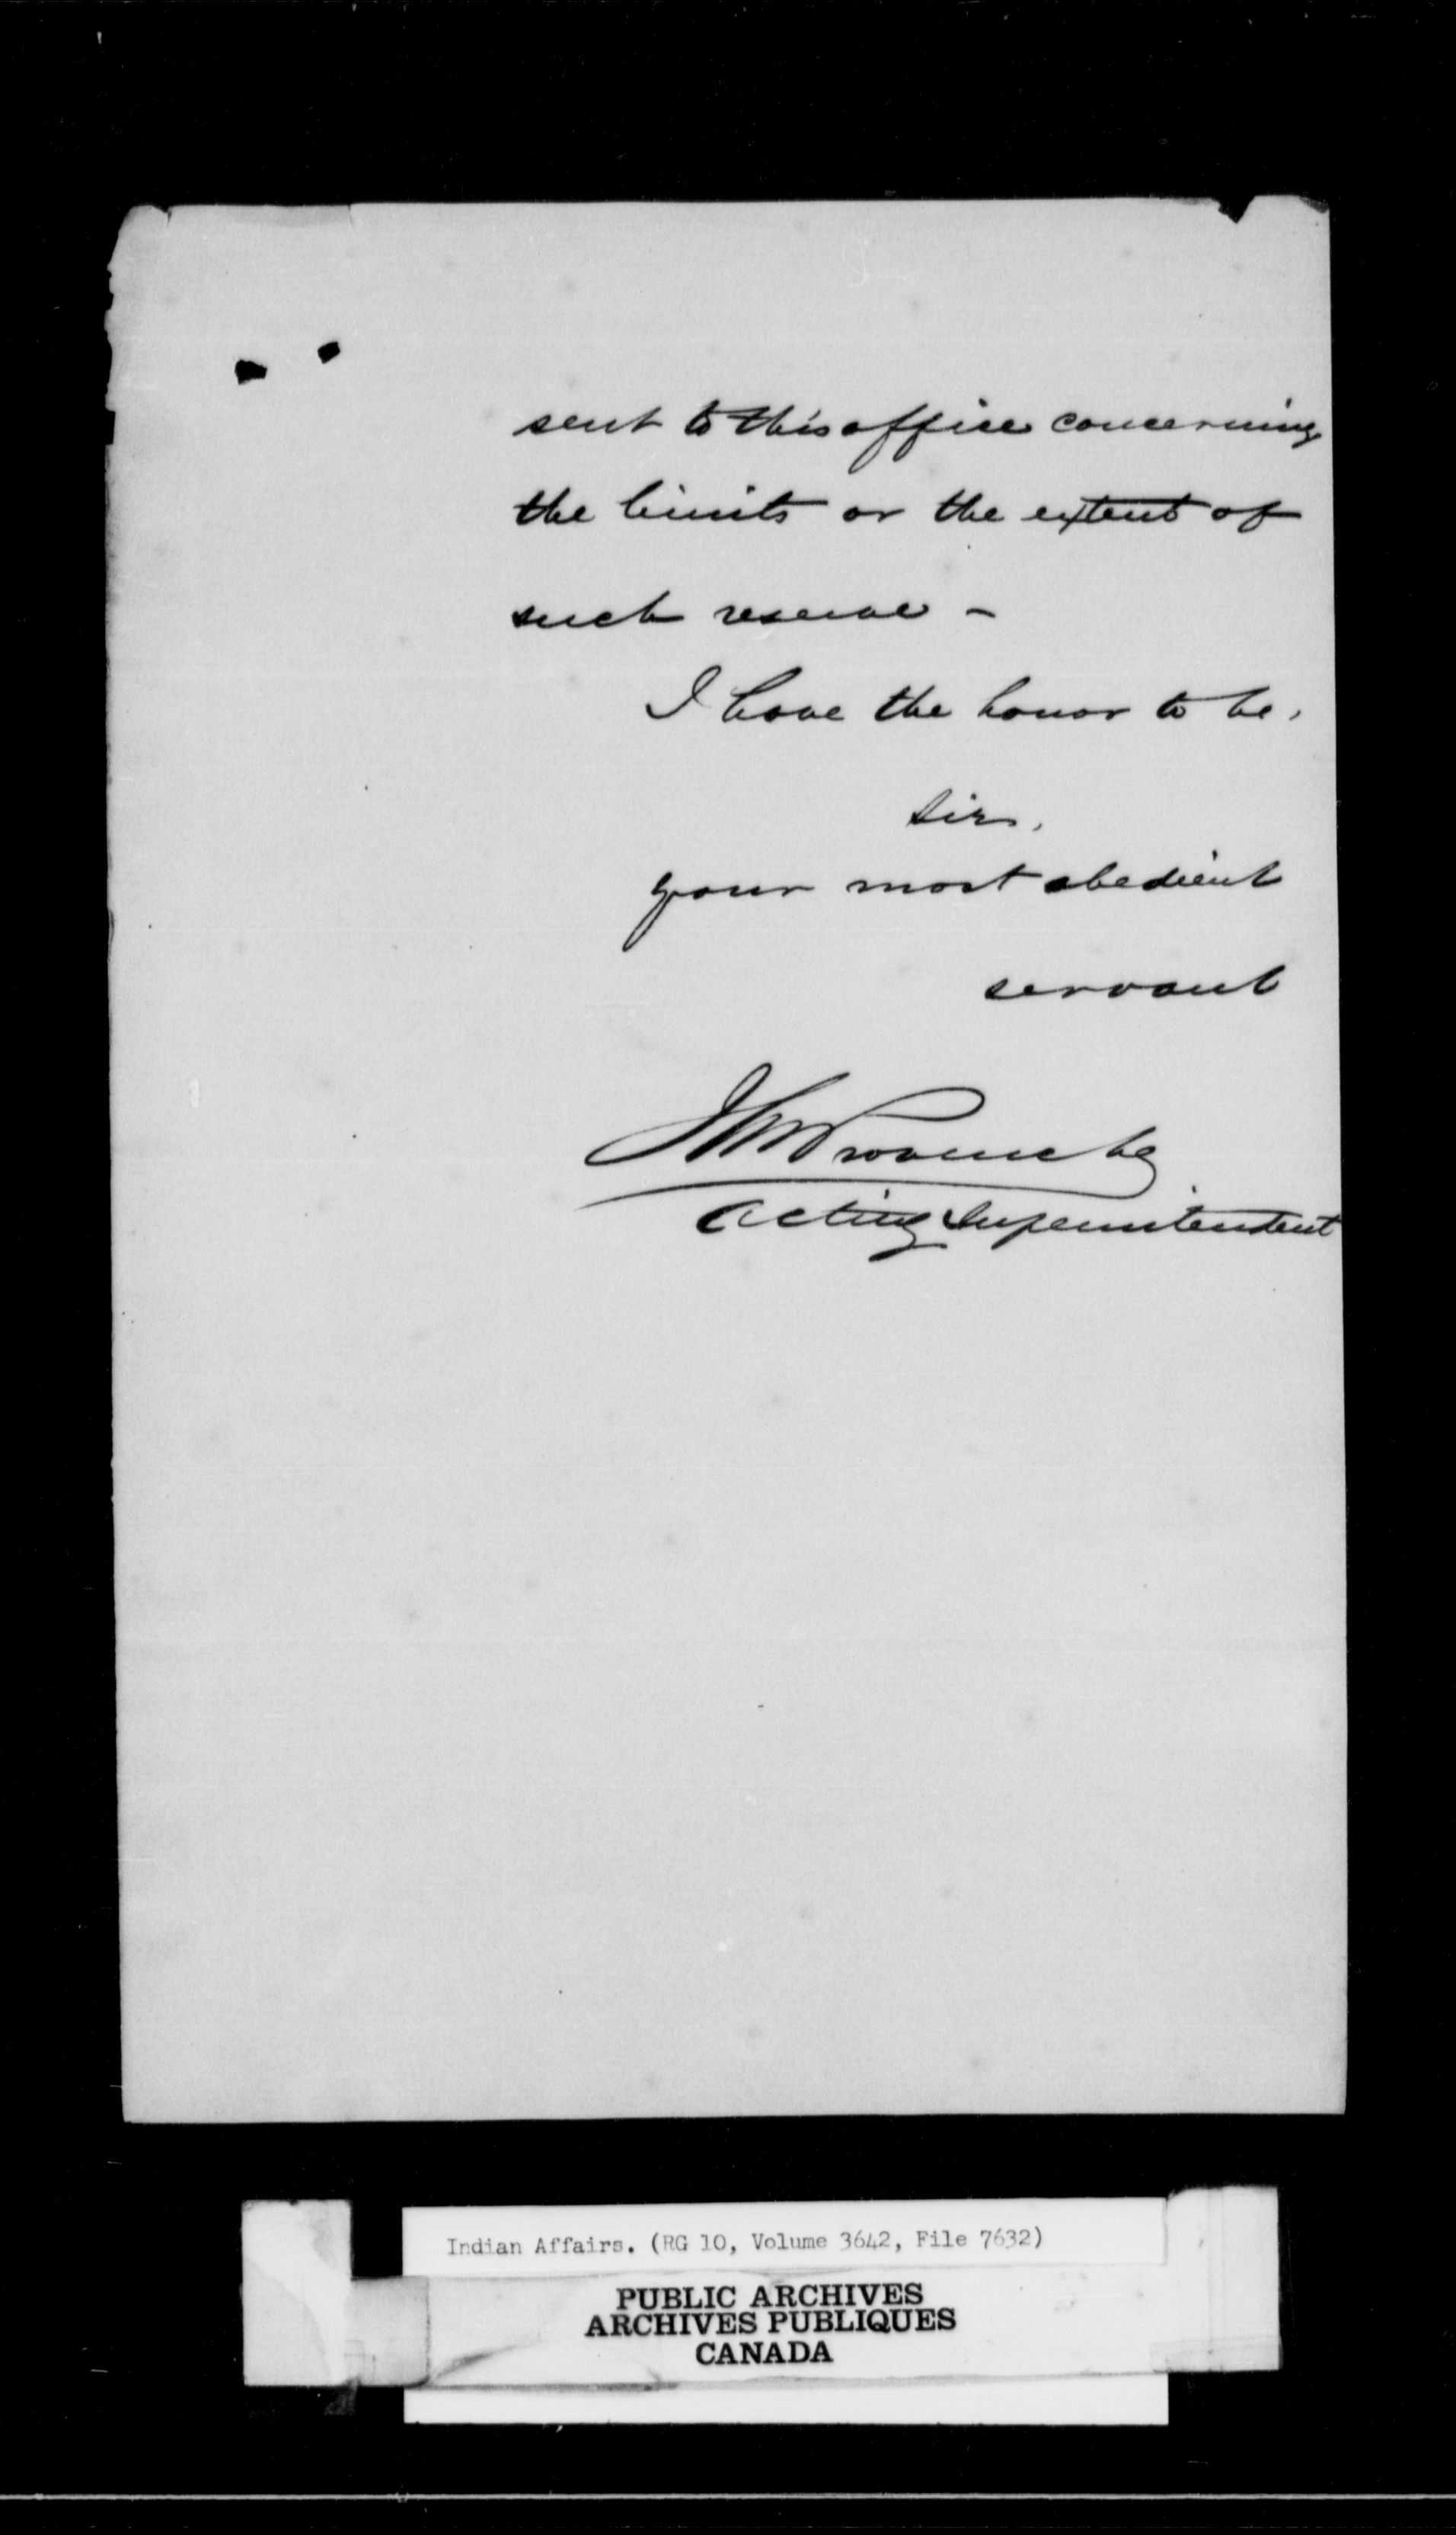 sent to this office concerning
the limits or the extent of
such reserve -
I have the honor to be,
Sir,
your most obedient
servant
J A N Provencher
Acting Superintendent
Indian Affairs. (RG 10, Volume 3642, File 7632)
PUBLIC ARCHIVES
ARCHIVES PUBLIQUES
CANADA